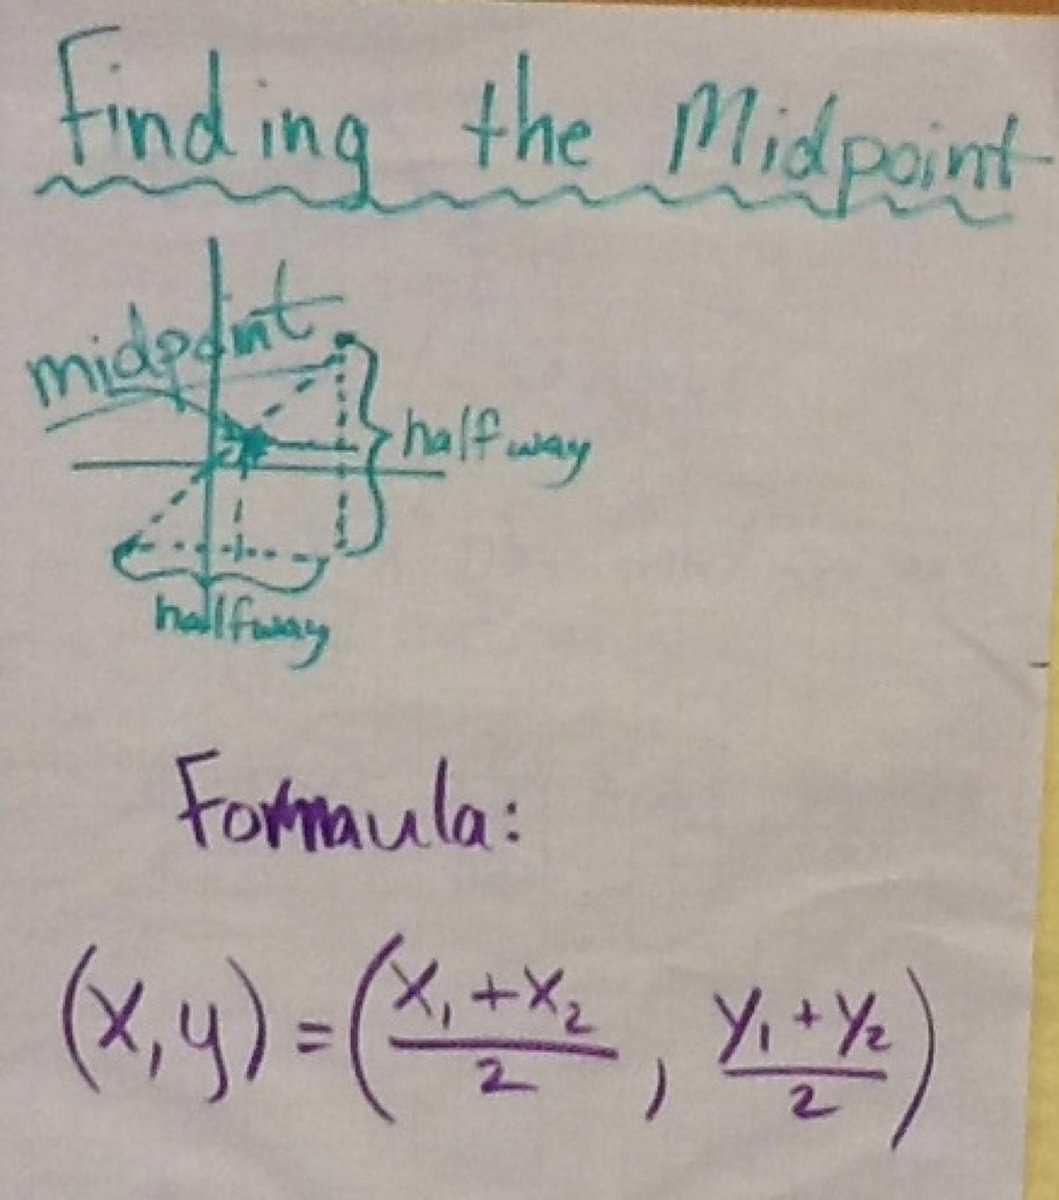 Finding the Midpoint
midpoint
halfway
halfway
Formaula:
(x,y) = (x₁+x₂/2, y₁+y₂/2)